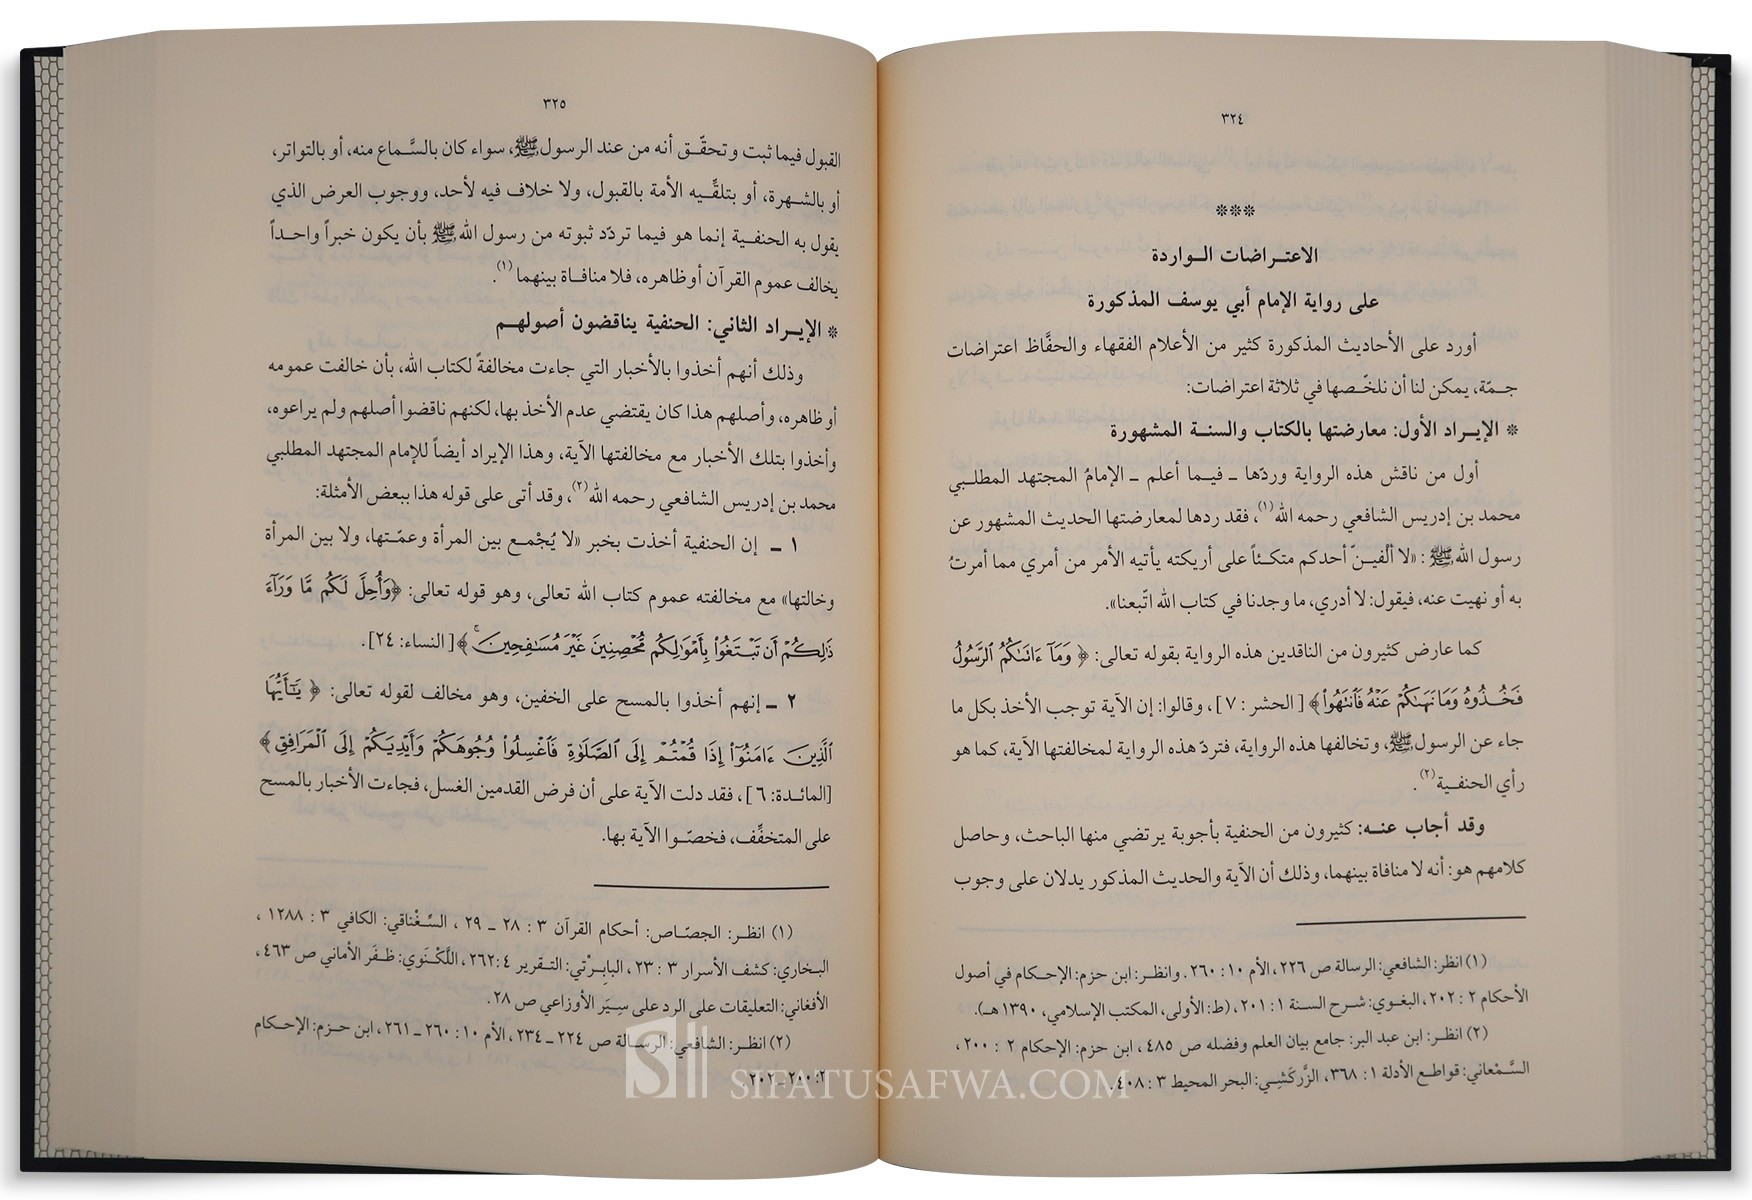 ٣٢٤
***
الاعتـراضات الـواردة
على رواية الإمام أبي يوسف المذكورة
أورد على الأحاديث المذكورة كثير من الأعلام الفقهاء والحفَّاظ اعتراضات
جـمّة، يمكن لنا أن نلخّـصها في ثلاثة اعتراضات:
* الإيـراد الأول: معارضتها بالكتاب والسنة المشهورة
أول من ناقش هذه الرواية وردّها ـ فيـما أعلم ـ الإمامُ المجتهد المطلـبي
محمد بن إدريس الشافعي رحمه الله(١)، فقد ردها لمعارضتها الحديث المشهور عن
رسول الله ﷺ: «لا ألْفيـنّ أحدكم متكـئاً على أريكته يأتيه الأمر من أمري مما أمرتُ
به أو نهيت عنه، فيقول: لا أدري، ما وجدنا في كتاب الله اتّبعنا».
كما عارض كثيرون من الناقدين هذه الرواية بقوله تعالى: ﴿ وَمَآ ءَاتَىٰكُمُ ٱلرَّسُولُ
فَخُـذُوهُ وَمَا نَهَىٰكُمْ عَنْهُ فَٱنتَهُوا۟ ﴾ [الحشر: ٧]، وقالوا: إن الآية توجب الأخذ بكل ما
جاء عن الرسول ﷺ، وتخالفها هذه الرواية، فتردّ هذه الرواية لمخالفتها الآية، كما هو
رأي الحنفـية(٢).
وقد أجاب عنـه: كثيرون من الحنفية بأجوبة يرتضي منها الباحث، وحاصل
كلامهم هو: أنه لا منافاة بينهما، وذلك أن الآية والحديث المذكور يدلان على وجوب
(١) انظر: الشافعي: الرسالة ص ٢٢٦، الأم ١٠: ٢٦٠. وانظـر: ابن حزم: الإحـكام في أصول
الأحكام ٢: ٢٠٢، البغـوي: شـرح السـنة ١: ٢٠١، (ط: الأولى، المكتب الإسلامي، ١٣٩٠ هـ).
(٢) انظـر: ابن عبد البر: جامع بيان العلم وفضله ص ٤٨٥، ابن حزم: الإحكام ٢: ٢٠٠،
السَّـمْعاني: قواطـع الأدلة ١: ٣٦٨، الزَّركَشِـي: البحر المحيط ٣: ٤٠٨.
٣٢٥
القبول فيما ثبت وتحقّـق أنه من عند الرسول ﷺ، سواء كان بالسَّـماع منه، أو بالتواتر،
أو بالشـهرة، أو بتلقّـيه الأمة بالقبول، ولا خلاف فيه لأحد، ووجوب العرض الذي
يقول به الحنفـية إنما هو فيما تردّد ثبوته من رسول الله ﷺ بأن يكون خبراً واحـداً
يخالف عموم القرآن أو ظاهره، فلا منافـاة بينهما(١).
* الإيـراد الثاني: الحنفية يناقضون أصولهـم
وذلك أنهم أخذوا بالأخبار التي جاءت مخالفةً لكتاب الله، بأن خالفت عمومه
أو ظاهره، وأصلهم هذا كان يقتضي عدم الأخذ بها، لكنهم ناقضوا أصلهم ولم يراعوه،
وأخذوا بتلك الأخبار مع مخالفتها الآية، وهذا الإيراد أيضاً للإمام المجتهد المطلبي
محمد بن إدريس الشافعي رحمه الله(٢)، وقد أتى على قوله هذا ببعض الأمثلة:
١ ـ إن الحنفية أخذت بخبر «لا يُجْمـع بين المرأة وعمّـتها، ولا بين المرأة
وخالتها» مع مخالفته عموم كتاب الله تعالى، وهو قوله تعالى: ﴿وَأُحِلَّ لَكُم مَّا وَرَآءَ
ذَٰلِكُمْ أَن تَبْتَغُوا۟ بِأَمْوَٰلِكُم مُّحْصِنِينَ غَيْرَ مُسَٰفِحِينَ ۚ ﴾ [النساء: ٢٤].
٢ ـ إنهم أخذوا بالمسح على الخفين، وهو مخالف لقوله تعالى: ﴿ يَٰٓأَيُّهَا
ٱلَّذِينَ ءَامَنُوٓا۟ إِذَا قُمْتُمْ إِلَى ٱلصَّلَوٰةِ فَٱغْسِلُوا۟ وُجُوهَكُمْ وَأَيْدِيَكُمْ إِلَى ٱلْمَرَافِقِ ﴾
[المائـدة: ٦]، فقد دلت الآية على أن فرض القدمين الغسل، فجاءت الأخبار بالمسح
على المتخفِّف، فخصّـوا الآية بها.
(١) انظـر: الجصّـاص: أحكام القرآن ٣: ٢٨ ـ ٢٩، السِّغْناقي: الكافي ٣: ١٢٨٨،
البـخاري: كشف الأسرار ٣: ٢٣، البابِرْتي: التقرير ٤: ٢٦٢، اللَّكْنَوي: ظـفَر الأماني ص ٤٦٣،
الأفغاني: التعليقات على الرد على سِـيَر الأوزاعي ص ٢٨.
(٢) انظـر: الشافعي: الرسـالة ص ٢٢٤ ـ ٢٣٤، الأم ١٠: ٢٦٠ ـ ٢٦١، ابن حـزم: الإحـكام
٢: ٢٠٠ ـ ٢٠٢.
SIFATUSAFWA.COM